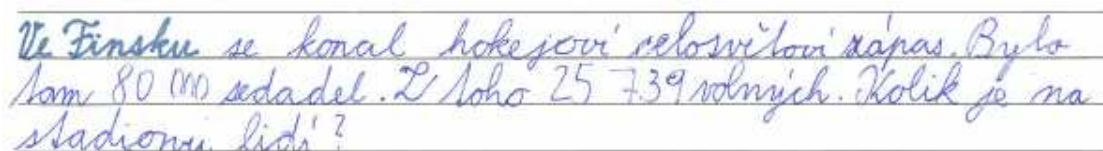 Ve Finsku se konal hokejoví celosvětoví zápas. Bylo
tam 80 000 sedadel. Z toho 25 739 volných. Kolik je na
stadionu lidí?